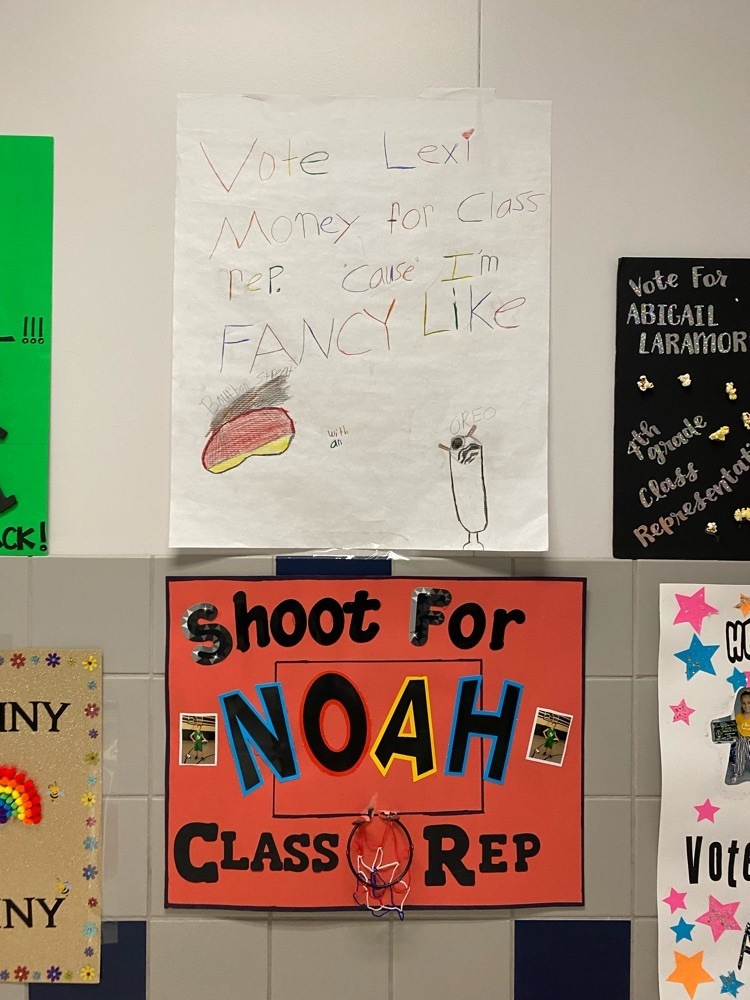 !!!
CK!
Vote Lexi
Money for Class
rep. 'cause' I'm
FANCY Like
Bourbon Street
with
an
OREO
Vote For
ABIGAIL
LARAMOR
4th
grade
Class
Representati
Shoot For
NOAH
CLASS REP
INY
INY
Vote